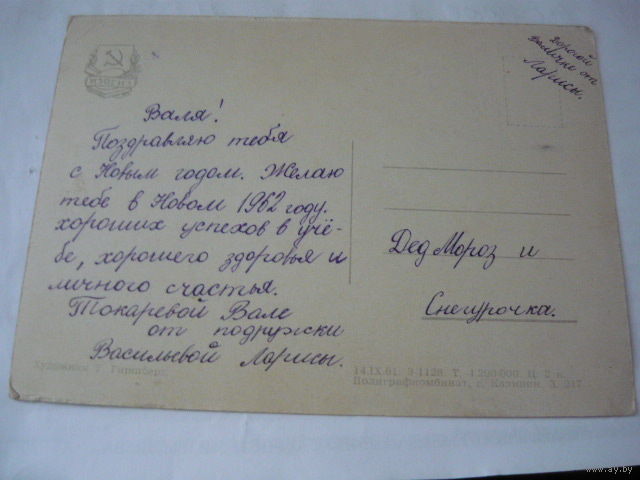 дорогой
Валечке от
Ларисы.
Валя!
Поздравляю тебя
с Новым годом. Желаю
тебе в Новом 1962 году.
хороших успехов в учё-
бе, хорошего здоровья и
личного счастья.
Токаревой Вале
от подружки
Васильевой Ларисы.
Дед Мороз и
Снегурочка.
Художник Т.
14.IX.61. З-1128. Т. 1.290.000. Ц. 2 к.
Полиграфкомбинат, г. Калинин. З. 217
www.ay.by